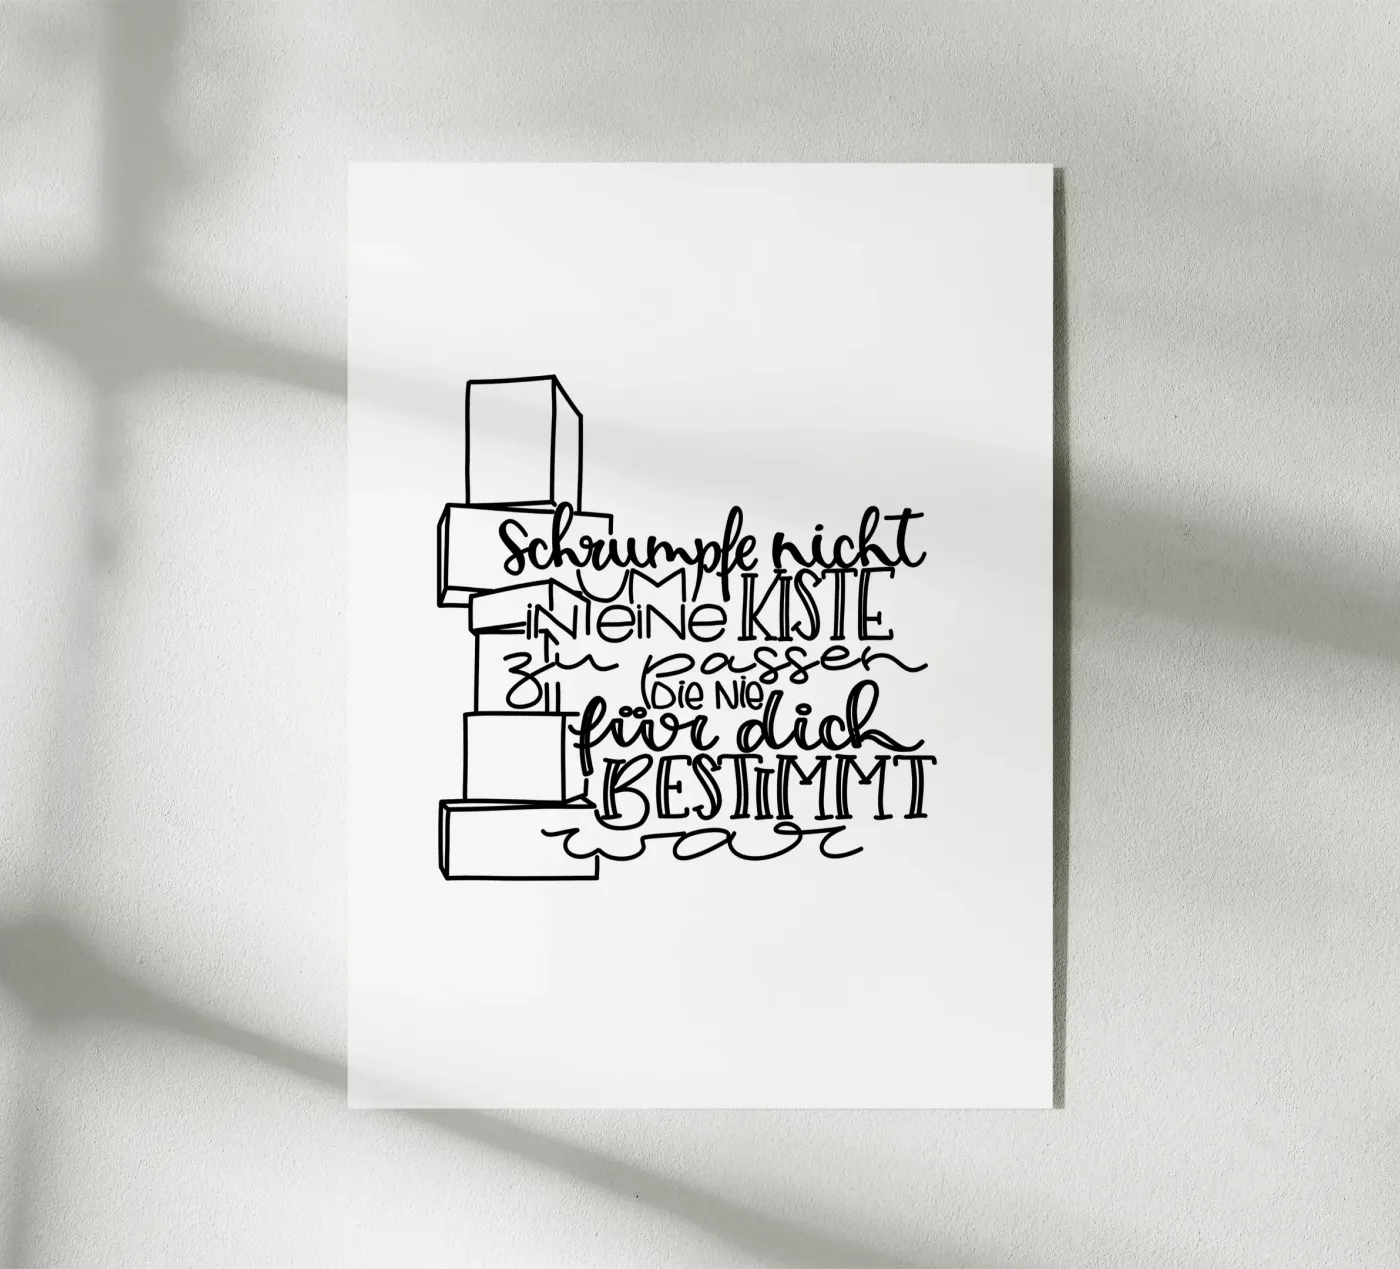 Schrumpfe nicht
UM
iN eiNe KISTE
zu passen
Die Nie
für dich
BESTIMMT
war